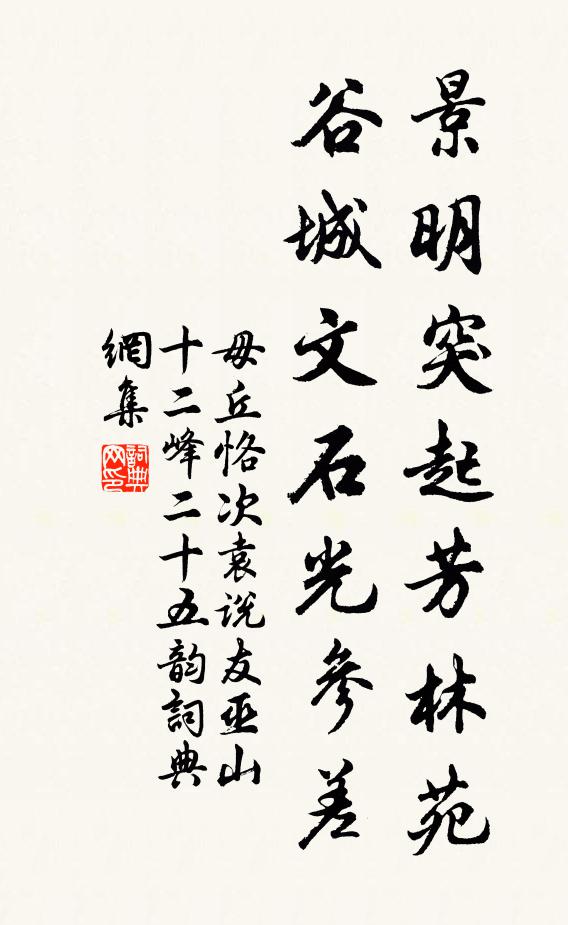 景明突起芳林苑
谷城文石光參差
毋丘恪次袁说友巫山
十二峰二十五韵詞典
網集
詞典
网印